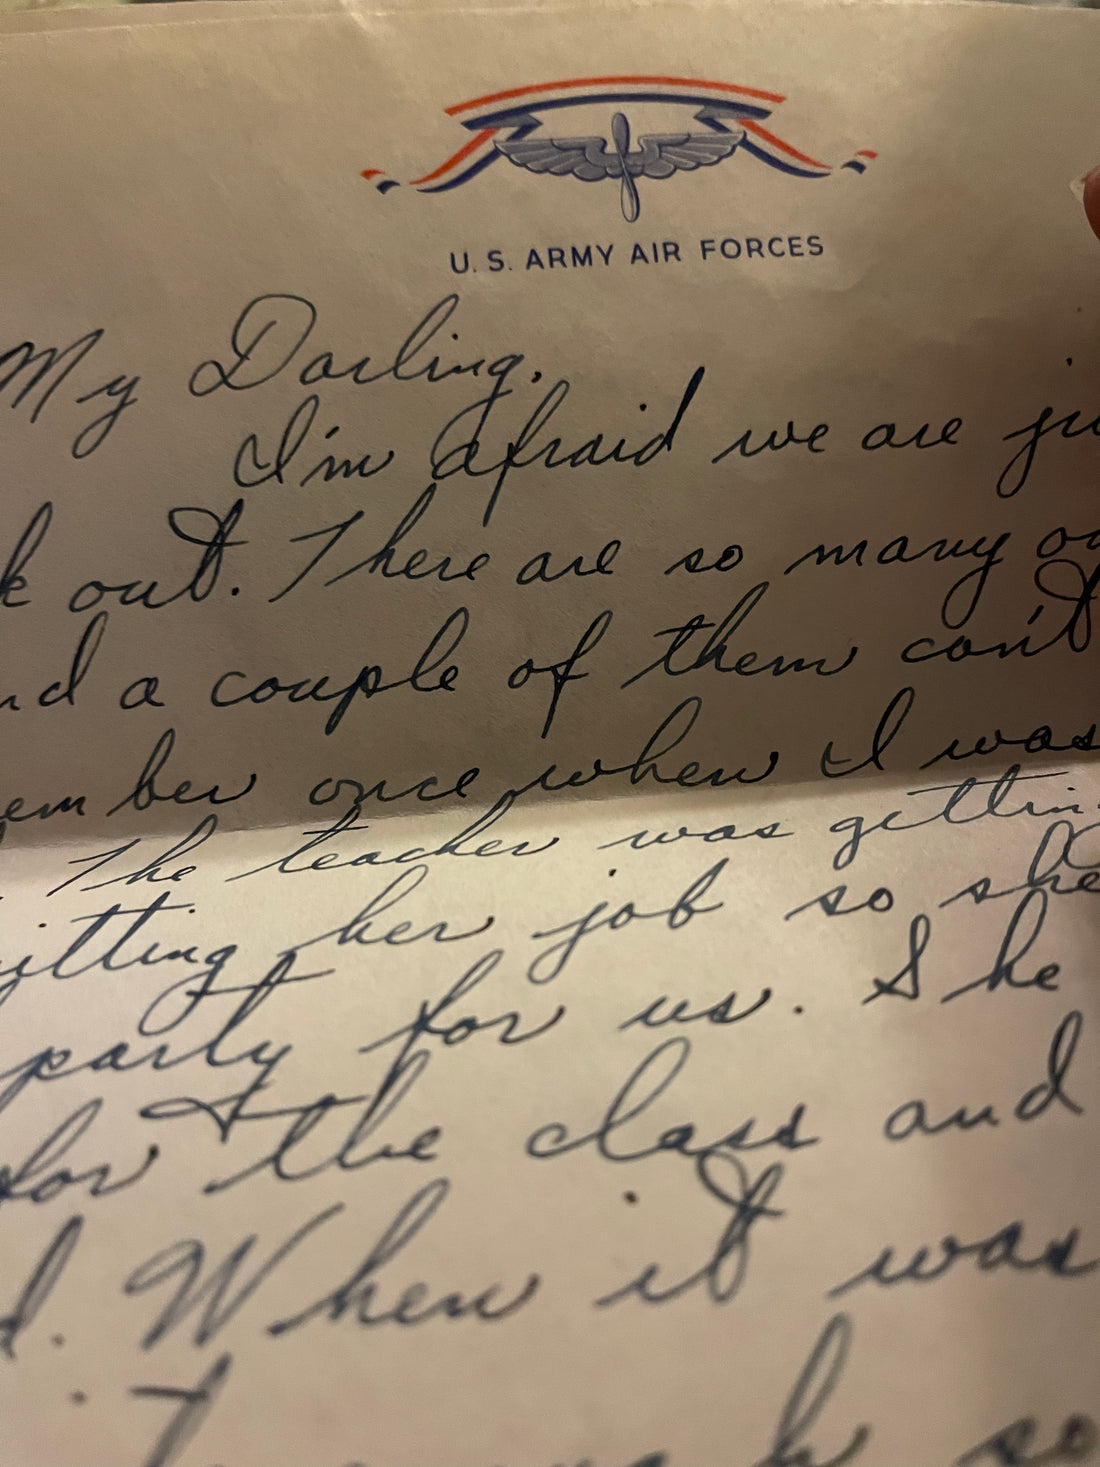 U. S. ARMY AIR FORCES
My Darling,
I'm afraid we are ju
k out. There are so many
nd a couple of them can't
ember once when I was
The teacher was gettin
itting her job so she
party for us. She
for the class and
d. When it was
so